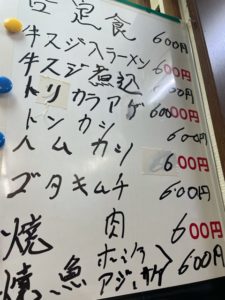 定食
牛スジ入ラーメン 600円
牛スジ煮込 600円
トリカラアゲ 600円
トンカシ 600円
ハムカシ 600円
ブタキムチ 600円
焼肉 600円
焼魚 ホッケ アジ・サケ 600円